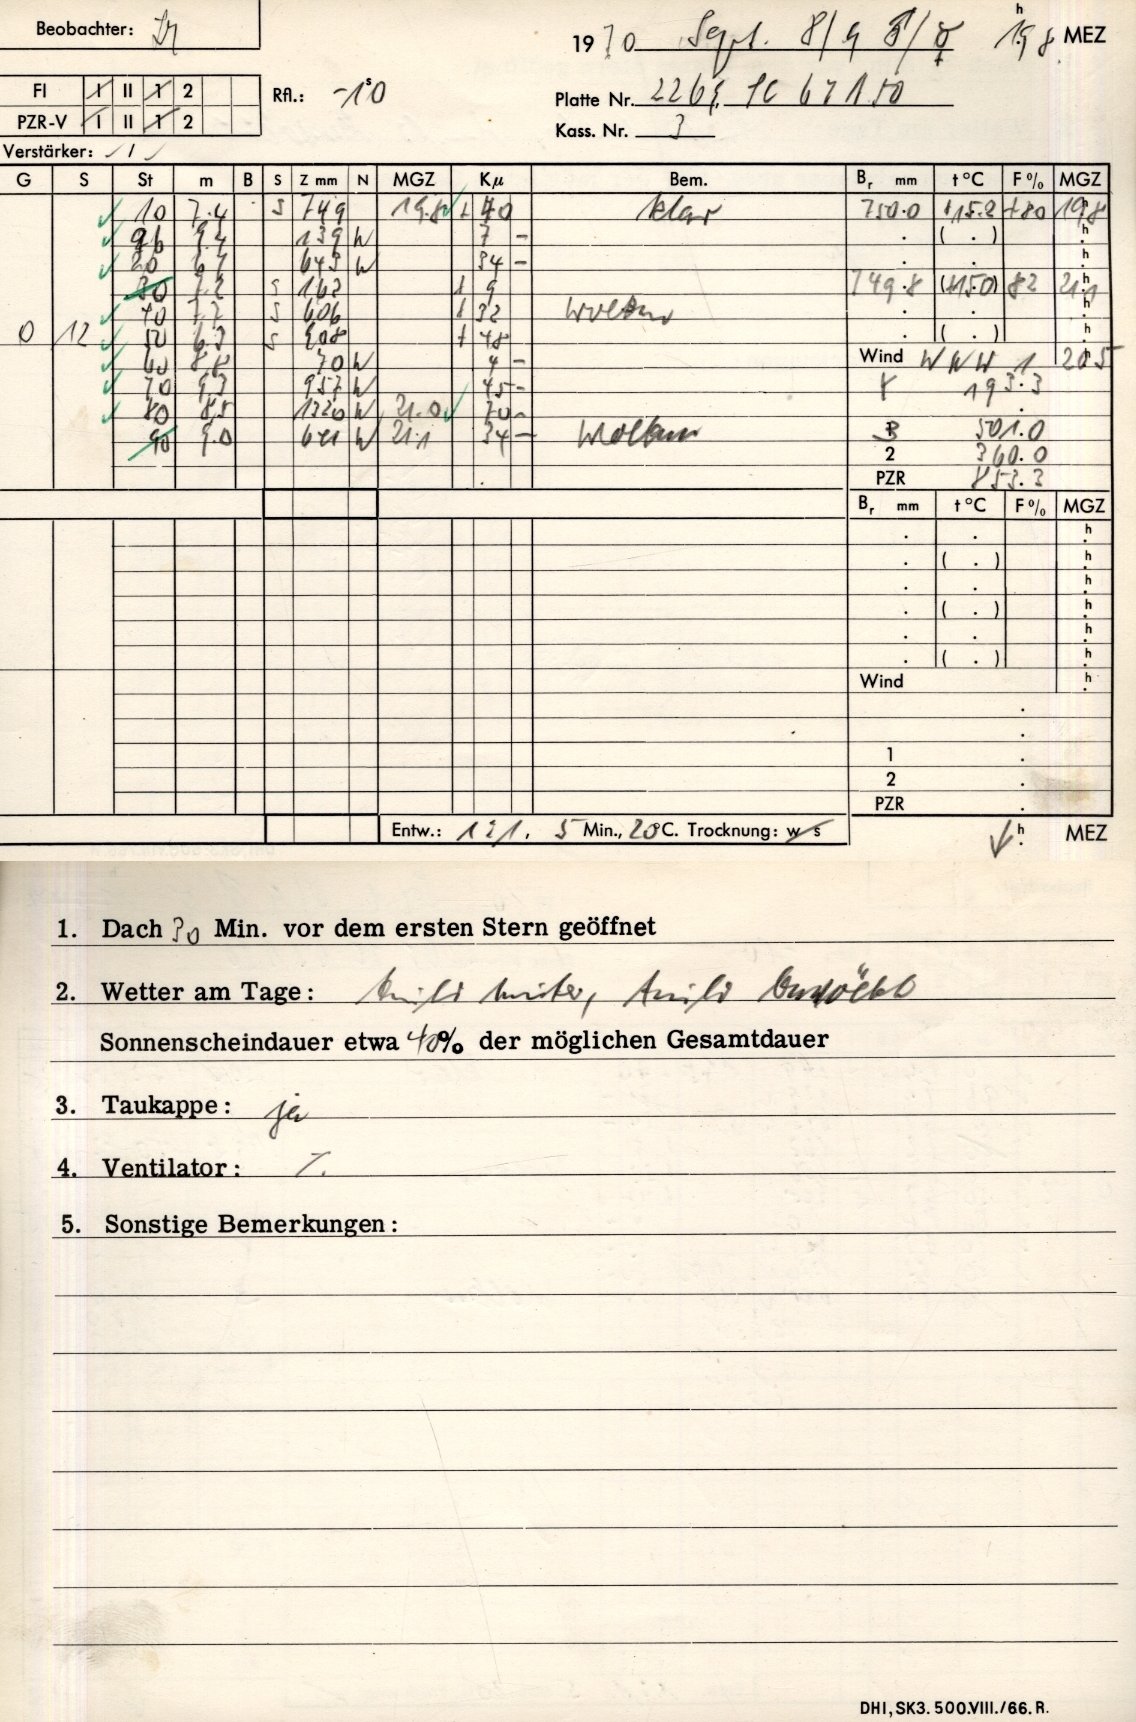 Beobachter:
1970 Sept. 8/9 19.8 h MEZ
FI I II 1 2
Rfl.: -1.0 s
Platte Nr. 2269, SC 671.50
PZR-V I II 1 2
Kass. Nr. 3
Verstärker: 1
G S St m B S Z mm N MGZ Kμ Bem. Br mm t °C F % MGZ
10 7.4 S 749 19.8 + 40 klar 750.0 +15.2 +80 19.8 h
96 9.4 139 W 7 - . ( . ) h
20 6.7 643 W 34 - . . h
30 7.2 S 162 + 9 749.8 (+15.0) 82 21.1 h
40 7.7 S 606 + 32 Wolken . . h
0 12 50 6.3 S 908 + 48 . ( . ) h
60 8.8 70 W 4 - Wind WNW 1 20.5 h
70 9.3 957 W 45 - 193.3
80 8.5 1320 W 21.0 70 - .
90 9.0 641 W 21.1 34 - Wolken 501.0
2 360.0
PZR 853.3
Br mm t °C F % MGZ
. . h
. ( . ) h
. . h
. ( . ) h
. . h
. ( . ) h
Wind h
.
.
1 .
2 .
PZR .
Entw.: 1:21, 5 Min., 20 °C. Trocknung: w s h MEZ
1. Dach 30 Min. vor dem ersten Stern geöffnet
2. Wetter am Tage: teils heiter, teils bewölkt
Sonnenscheindauer etwa 40% der möglichen Gesamtdauer
3. Taukappe: ja
4. Ventilator:
5. Sonstige Bemerkungen:
DHI, SK3. 500.VIII./66. R.